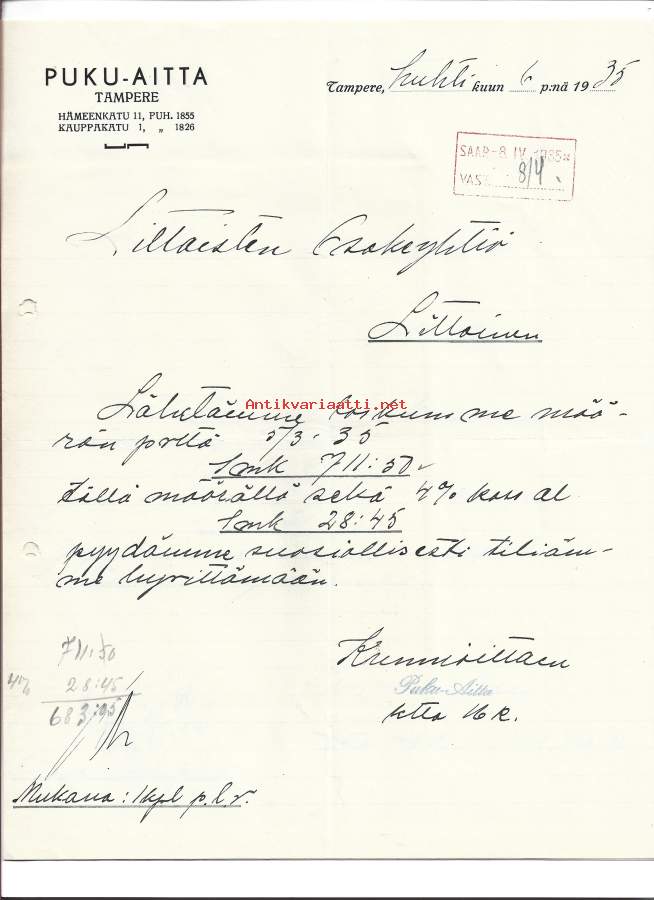 PUKU-AITTA
TAMPERE
HÄMEENKATU 11, PUH. 1855
KAUPPAKATU 1, „ 1826
Tampere, huhti kuun 6 p:nä 1935
SAAP. -8. IV. 1935
VAST. 8/4.
Littoisten Osakeyhtiö
Littoinen
Lähetämme laskumme mää-
rän pvttä 5/3-35
Smk 711:50
Antikvariaatti.net
tällä määrällä sekä 4% kass al
Smk 28:45
pyydämme suosiollisesti tiliäm-
me hyvittämään.
Kunnioittaen
Puku-Aitta
711:50
4% 28:45
683:05
Mukana: 1 kpl p.l.v.